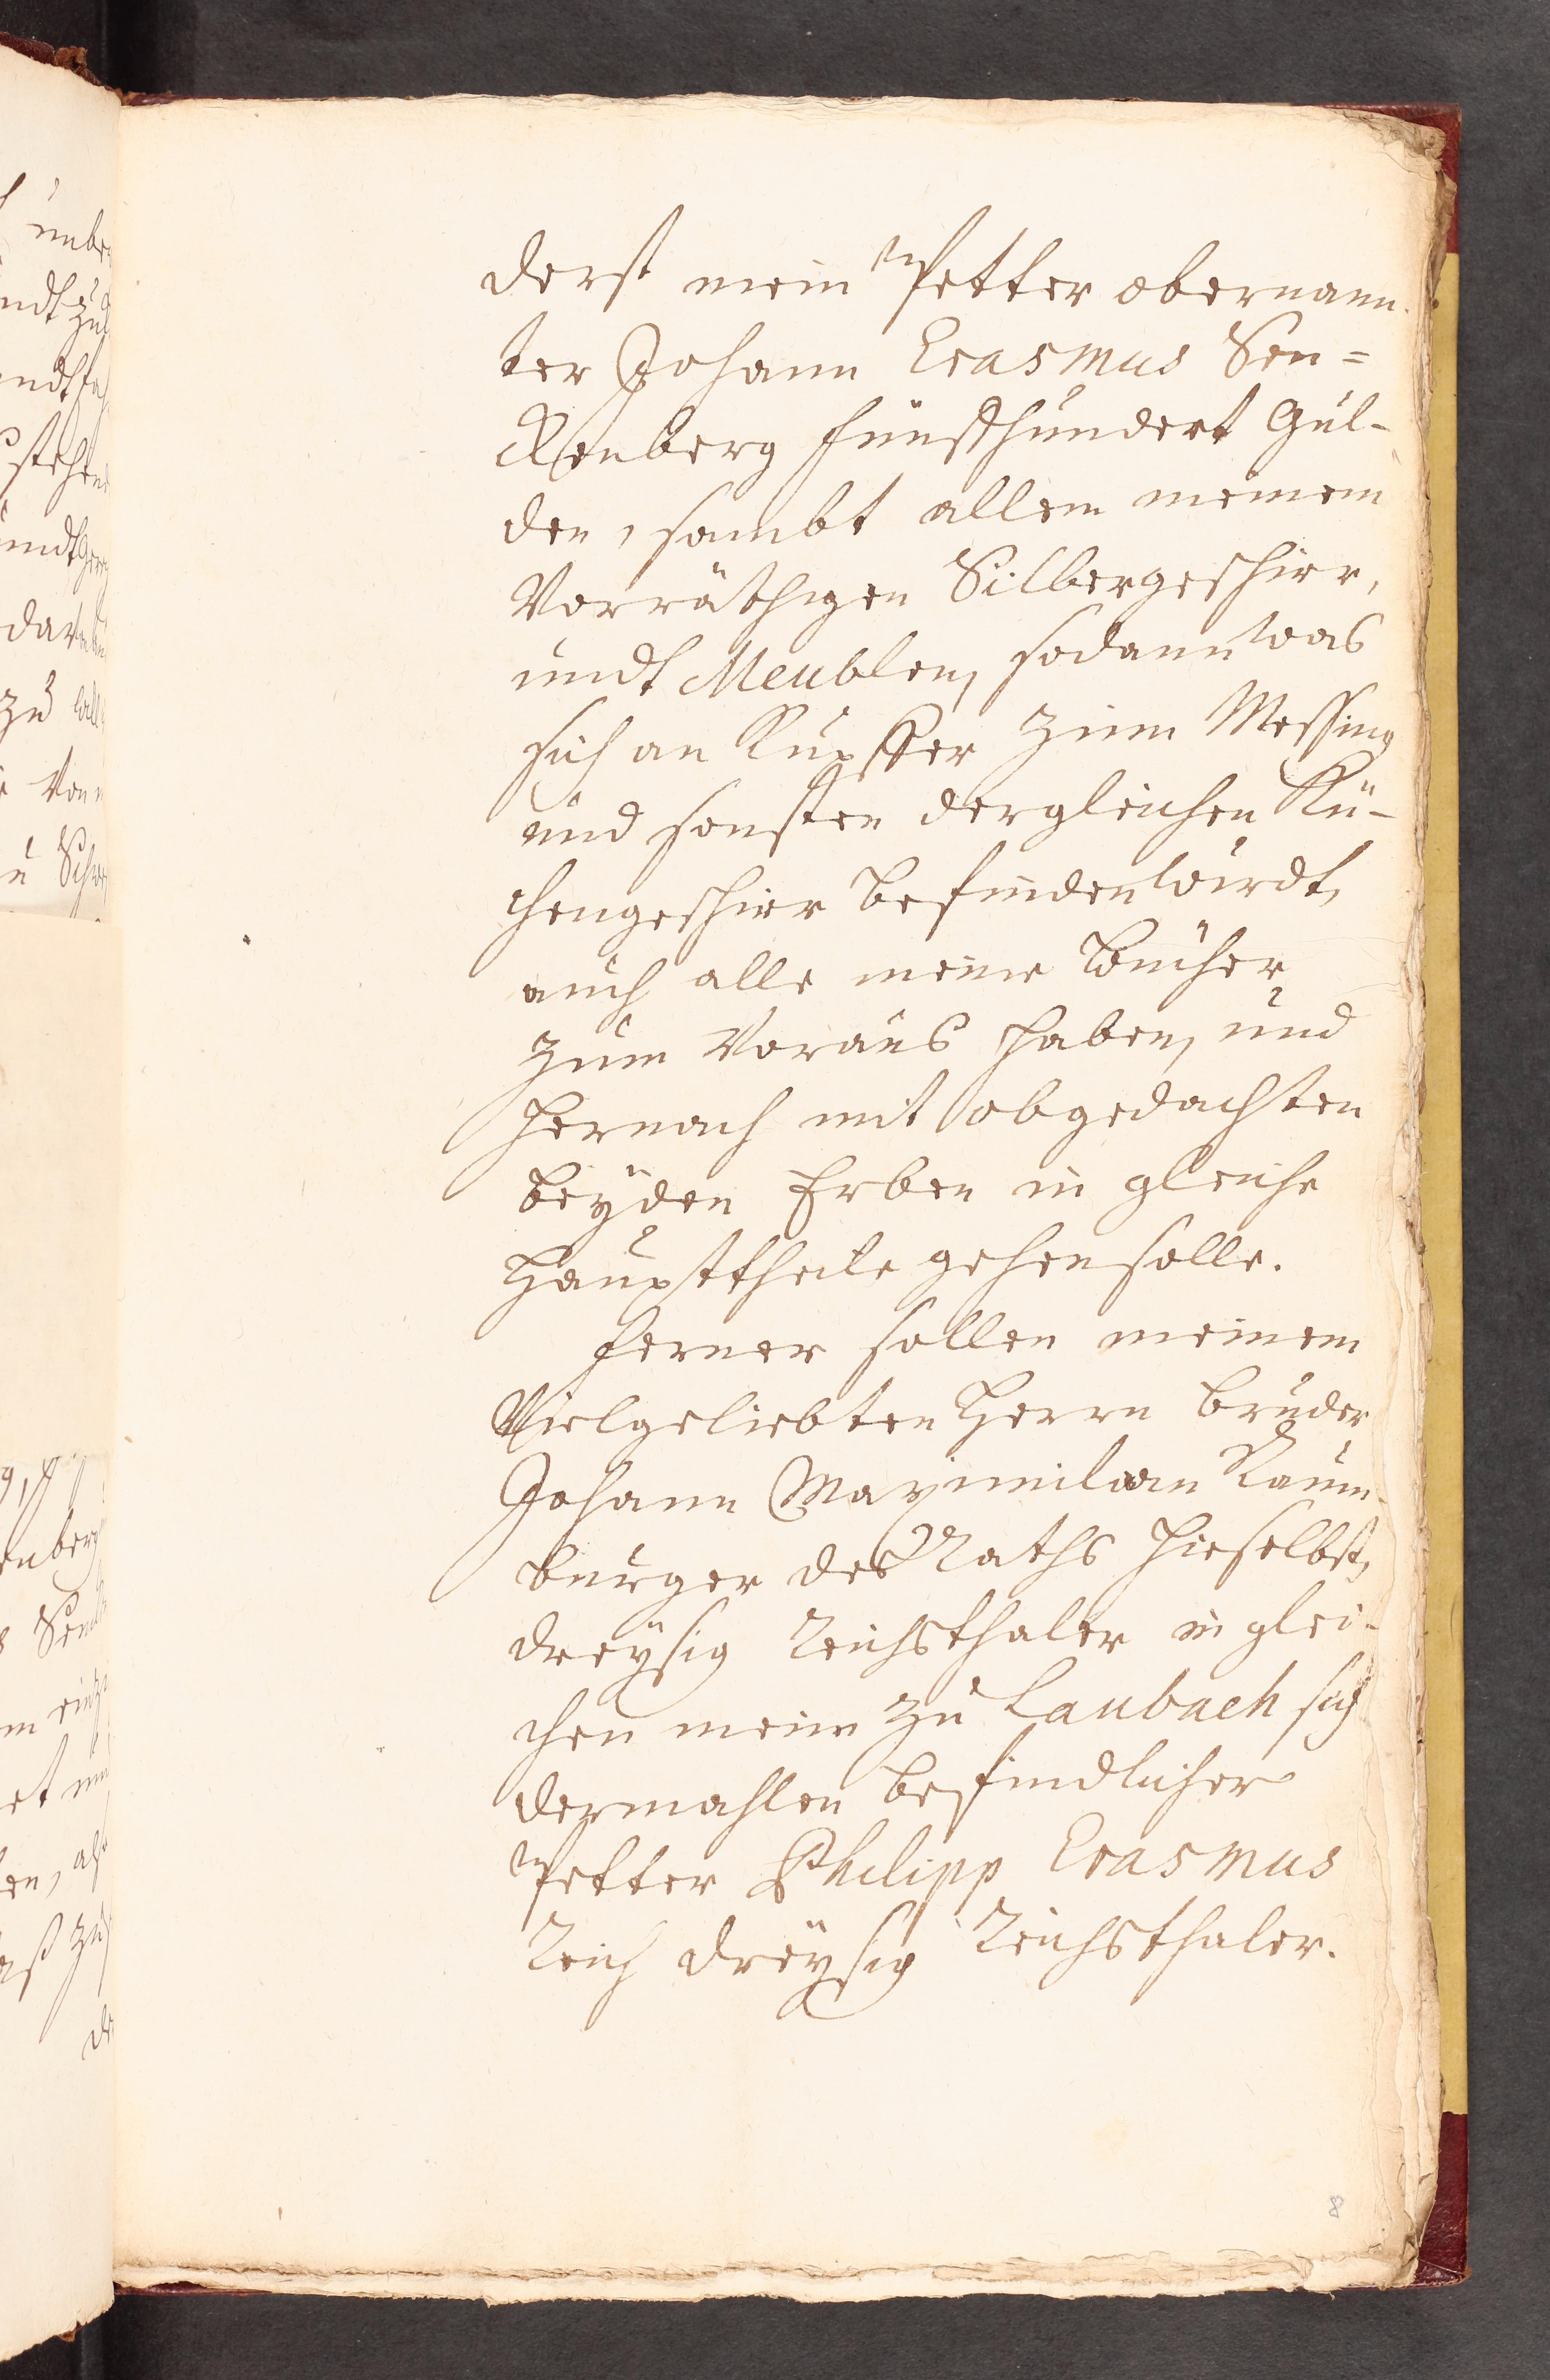 derst mein Petter obernann-
ter Johann Erasmus Sen=
ckenberg fünffhundert Gül-
den, sambt allem meinem
Vorräthigen Silbergeschirr,
undt Meublen, sodann was
sich an Kupffer Zinn Messing
und sonsten dergleichen Kü-
chengeschirr befinden wirdt,
auch alle meine Bücher
zum Voraus haben, und
hernach mit obgedachten
beyden Erben in gleiche
Haupttheile gehen solle.
Ferner sollen meinem
Vielgeliebten Herrn Bruder
Johann Maximilian Raum-
burger des Raths hieselbst,
dreysig Reichsthaler in glei-
chen mein zu Laubach sich
dermahlen befindlicher
Petter Philipp Erasmus
Reich dreysig Reichsthaler.
8